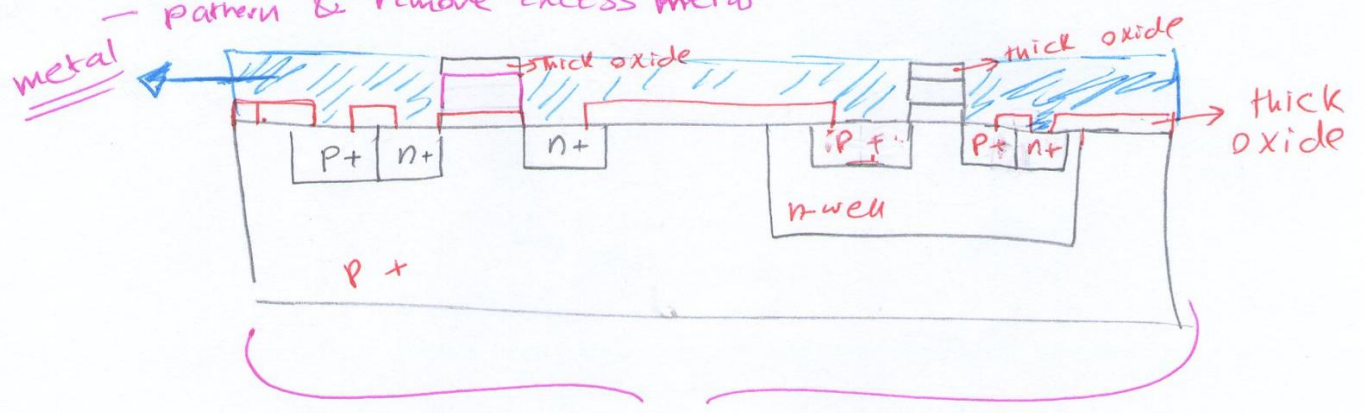 – pattern & remove excess metal
metal
thick oxide
thick oxide
thick
oxide
p+
n+
n+
p+
p+
n+
n-well
p +